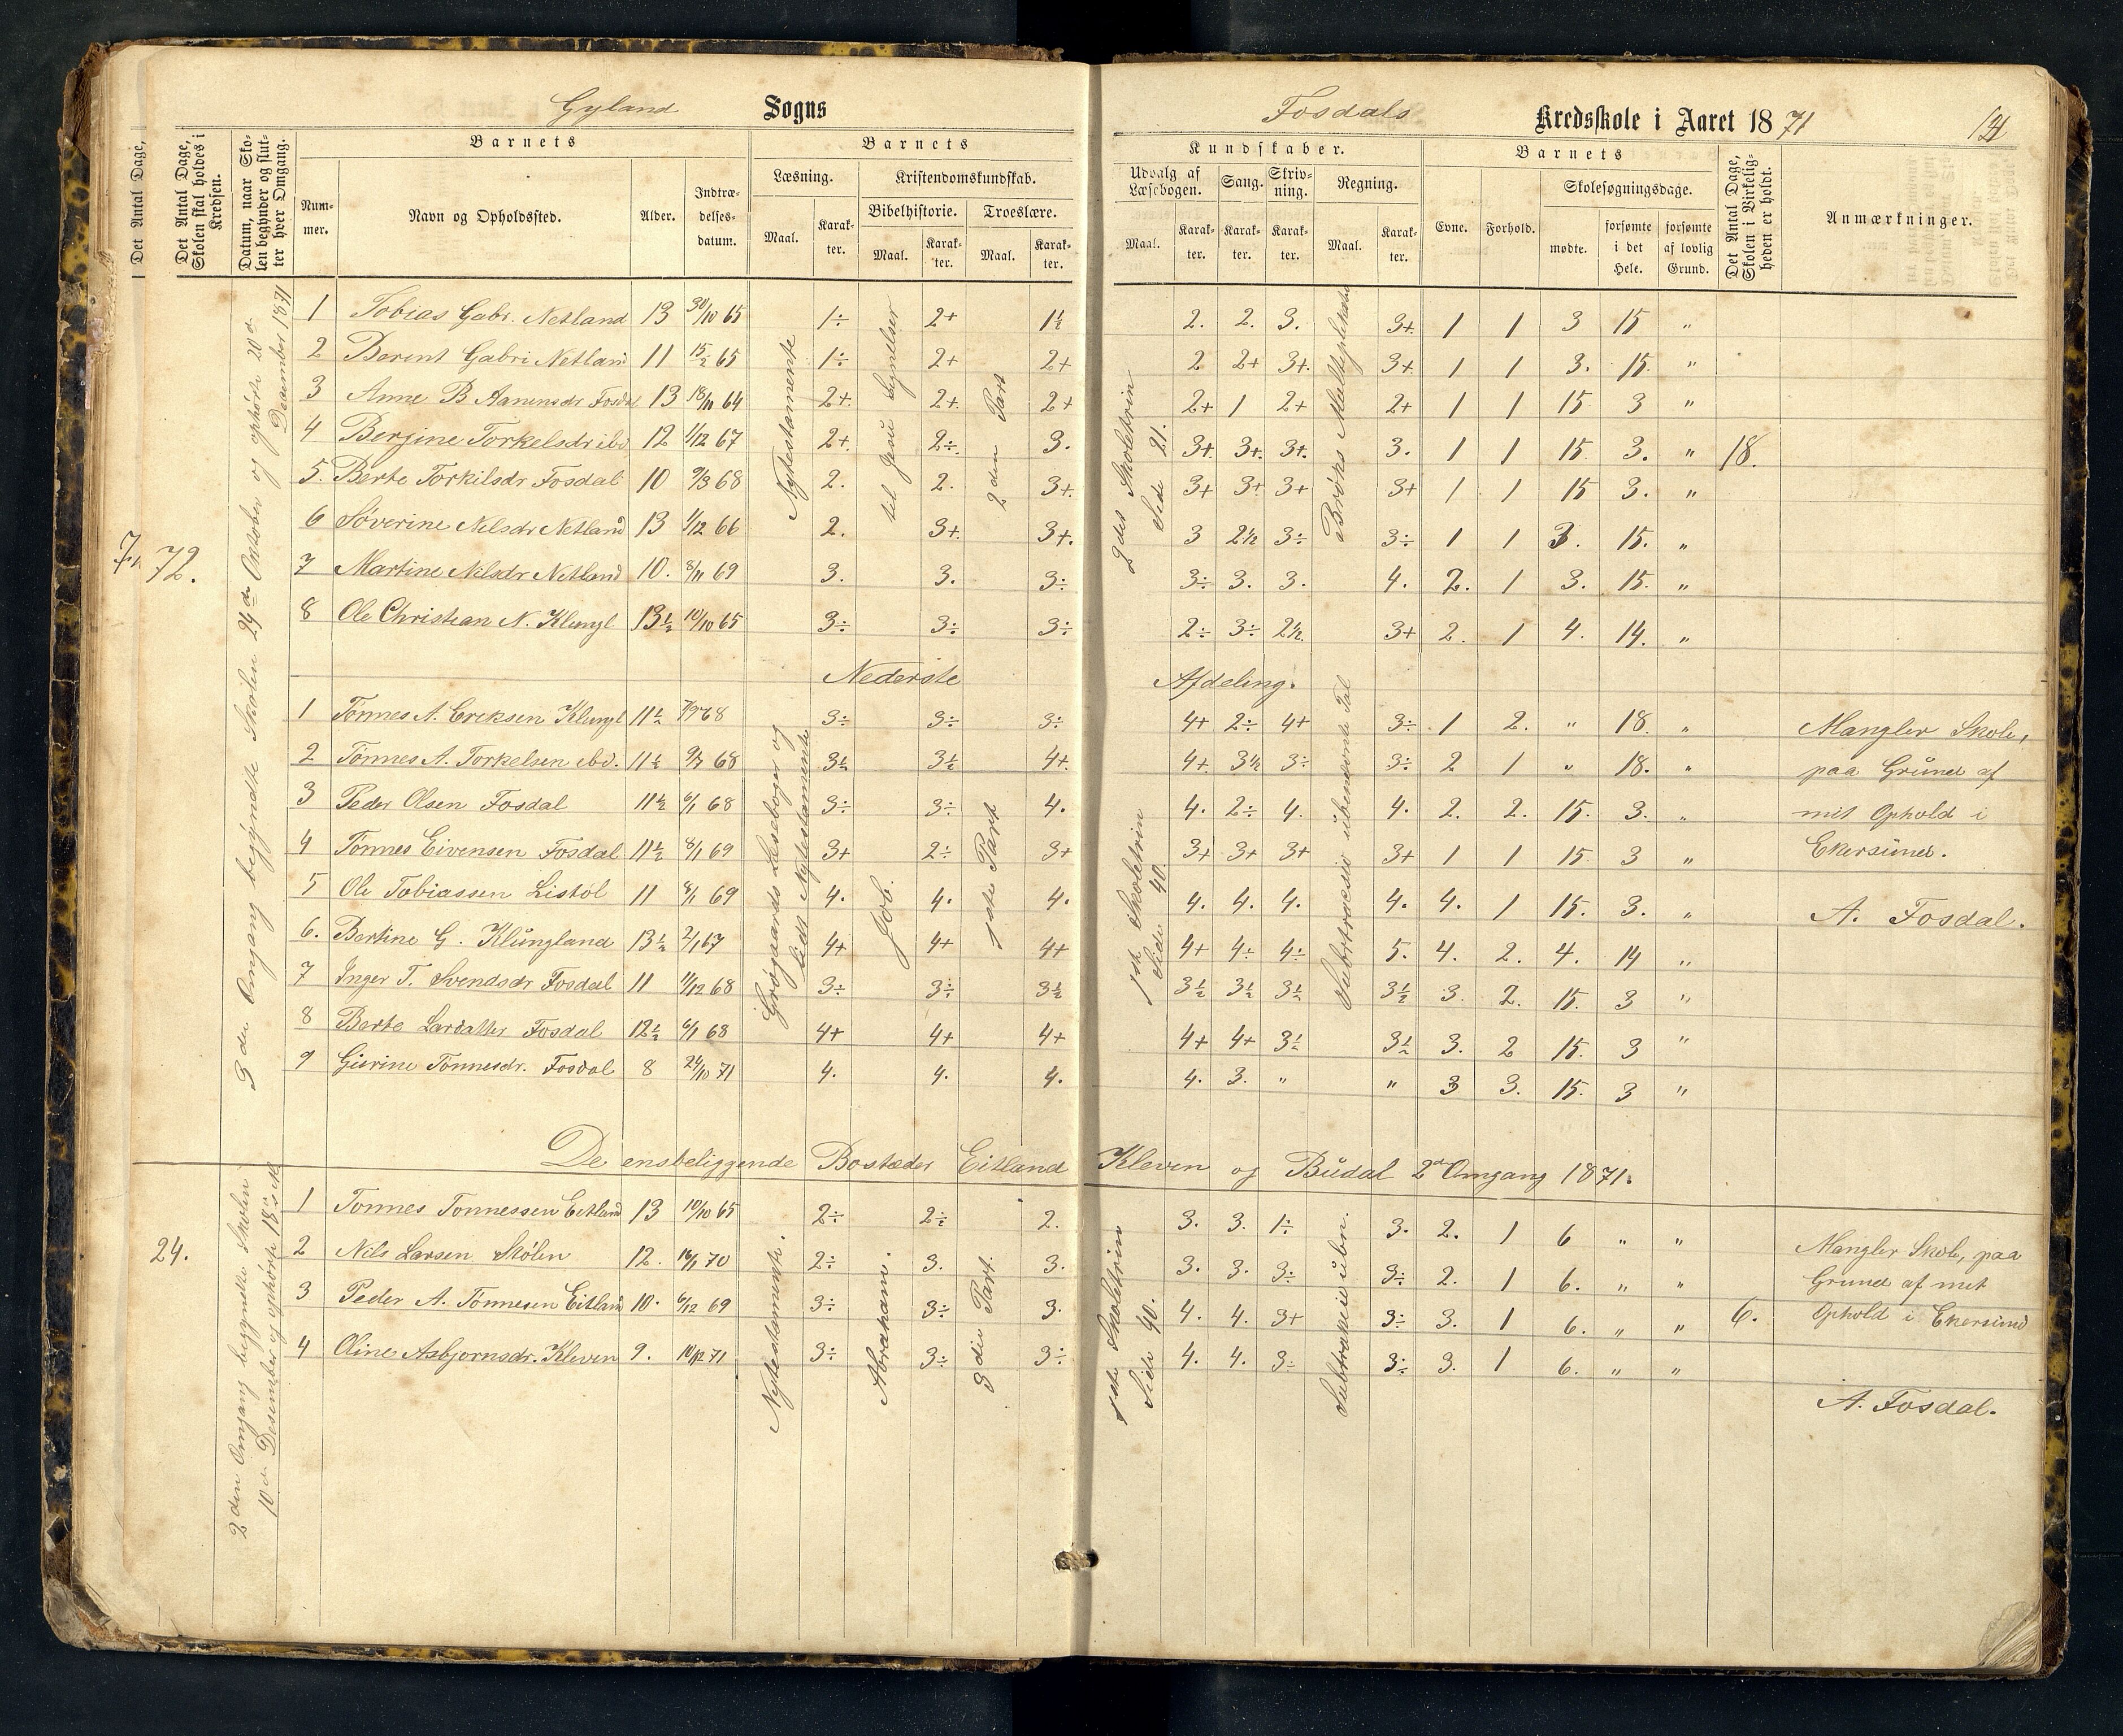 Gyland Sogns
Fosdals Kredsskole i Aaret 1871
Det Antal Dage,
Det Antal Dage, Skolen skal holdes i Kredsen.
Datum, naar Skolen begynder og slutter hver Omgang.
Barnets
Nummer.
Navn og Opholdssted.
Alder.
Indtrædelsesdatum.
Barnets
Læsning.
Maal.
Karakter.
Kristendomskundskab.
Bibelhistorie.
Maal.
Karakter.
Troeslære.
Maal.
Karakter.
Kundskaber.
Udvalg af Læsebogen.
Maal.
Karakter.
Sang.
Karakter.
Skrivning.
Karakter.
Regning.
Maal.
Karakter.
Barnets
Evne.
Forhold.
Skolesøgningsdage.
mødte.
forsømte i det Hele.
forsømte af lovlig Grund.
Det Antal Dage, Skolen i Virkeligheden er holdt.
Anmærkninger.
72.
3 die Omgang begyndte Skolen 24de Oktober og ophørte 20 d. December 1871
Nytestamente
til Jesu Lignelser
2 den Part
2 det Skoletrin Side 21.
Brøks Multiplikation
1 Tobias Gabr. Netland 13 30/10 65 1÷ 2+ 1½ 2. 2. 3. 3+ 1 1 3 15 "
2 Berent Gabri Netland 11 15/2 65 1÷ 2+ 2+ 2 2+ 3+. 3+. 1 1 3. 15. "
3 Anne B Aanensdr Fosdal 13 18/11 64 2+. 2+. 2+ 2+ 1 2+ 2+ 1 1 15 3 "
4 Bergine Torkelsdr ibd 12 1/12 67 2+. 2÷. 3. 3+. 3+. 3+. 3. 1 1 15. 3. " 18.
5. Berte Torkilsdr Fosdal 10 9/3 68 2. 2. 3+. 3+ 3+ 3+ 3+ 1 1 15 3. "
6 Söverine Nilsdr Netland 13 1/12 66 2. 3+. 3+. 3 2½ 3÷ 3÷ 1 1 3. 15. "
7 Martine Nilsdr Netland 10. 8/11 69 3. 3. 3÷ 3÷ 3. 3. 4. 2. 1 3. 15. "
8 Ole Christian N. Klungl 13½ 10/10 65 3÷ 3÷ 3÷ 2÷ 3÷ 2½. 3+ 2. 1 4. 14. "
Nederste Afdeling.
Grøgaards Læsebøger og lidt Nytestamente
Job.
1ste Part
1ste Skoletrin Side 40.
Subtraction ubenævnte Tal
1 Tønnes A. Ereksen Klungl 11½ 68 3÷ 3÷ 3÷ 4+ 2÷ 4+ 3÷ 1 2. " 18. " Mangler Skole,
2 Tønnes A. Torkelsen ibd. 11½ 9/7 68 3½ 3½ 4+. 4+. 3½ 3÷ 3÷ 2 1 " 18. " paa Grund af
3 Peder Olsen Fosdal 11½ 6/1 68 3÷ 3÷ 4. 4. 2÷ 4. 4. 2. 2. 15. 3. " mit Ophold i
4 Tønnes Eivensen Fosdal 11½ 8/1 69 3+ 2÷ 3+ 3+ 3+ 3+ 3+ 1 1 15. 3 " Ekersund.
5 Ole Tobiassen Listøl 11 8/1 69 4. 4. 4. 4. 4. 4. 4. 4. 1 15. 3. " A. Fosdal.
6. Bertine G. Klungland 13½ 2/1 67 4+ 4+ 4+ 4+ 4÷ 4÷ 5. 4. 2. 4. 14 "
7 Inger T. Svendsdr Fosdal 11 11/12 68 3÷ 3÷ 3½ 3½ 3½ 3½ 3½ 3. 2. 15. 3 "
8 Berte Larsdatter Fosdal 12½ 6/1 68 4+ 4+ 4+ 4+ 4+ 3½ 3½ 3. 2 15. 3 "
9 Gurine Tønnesdr. Fosdal 8 24/10 71 4. 4. 4. 4. 3. " " 3 3. 15. 3 "
De ensbeliggende Bostæder Eitland Kleven og Budal 2d Omgang 1871.
24.
2 den Omgang begyndte Skolen 10 d. Desember og ophørte 18
Nytestamente.
Abraham.
3 die Part.
1ste Skoletrin Side 40.
Subtraktion ubn.
1 Tønnes Tønnessen Eitland 13 10/10 65 2÷ 2÷ 2. 3. 3. 1÷ 3. 2. 1 6 " " Mangler Skole, paa
2 Nils Larsen Skølen 12. 16/1 70 2÷ 3. 3. 3. 3. 3÷ 3÷ 2. 1 6. " " Grund af mit
3 Peder A. Tønnesen Eitland 10. 6/12 69 3÷ 3÷ 3. 4. 4. 3+ 3÷ 3. 1 6. " " 6. Ophold i Ekersund
4 Oline Asbjørnsdr. Kleven 9. 10/12 71 3÷ 3÷ 3÷ 4. 4. 3÷ 3÷ 3. 1 6. " "
A. Fosdal.